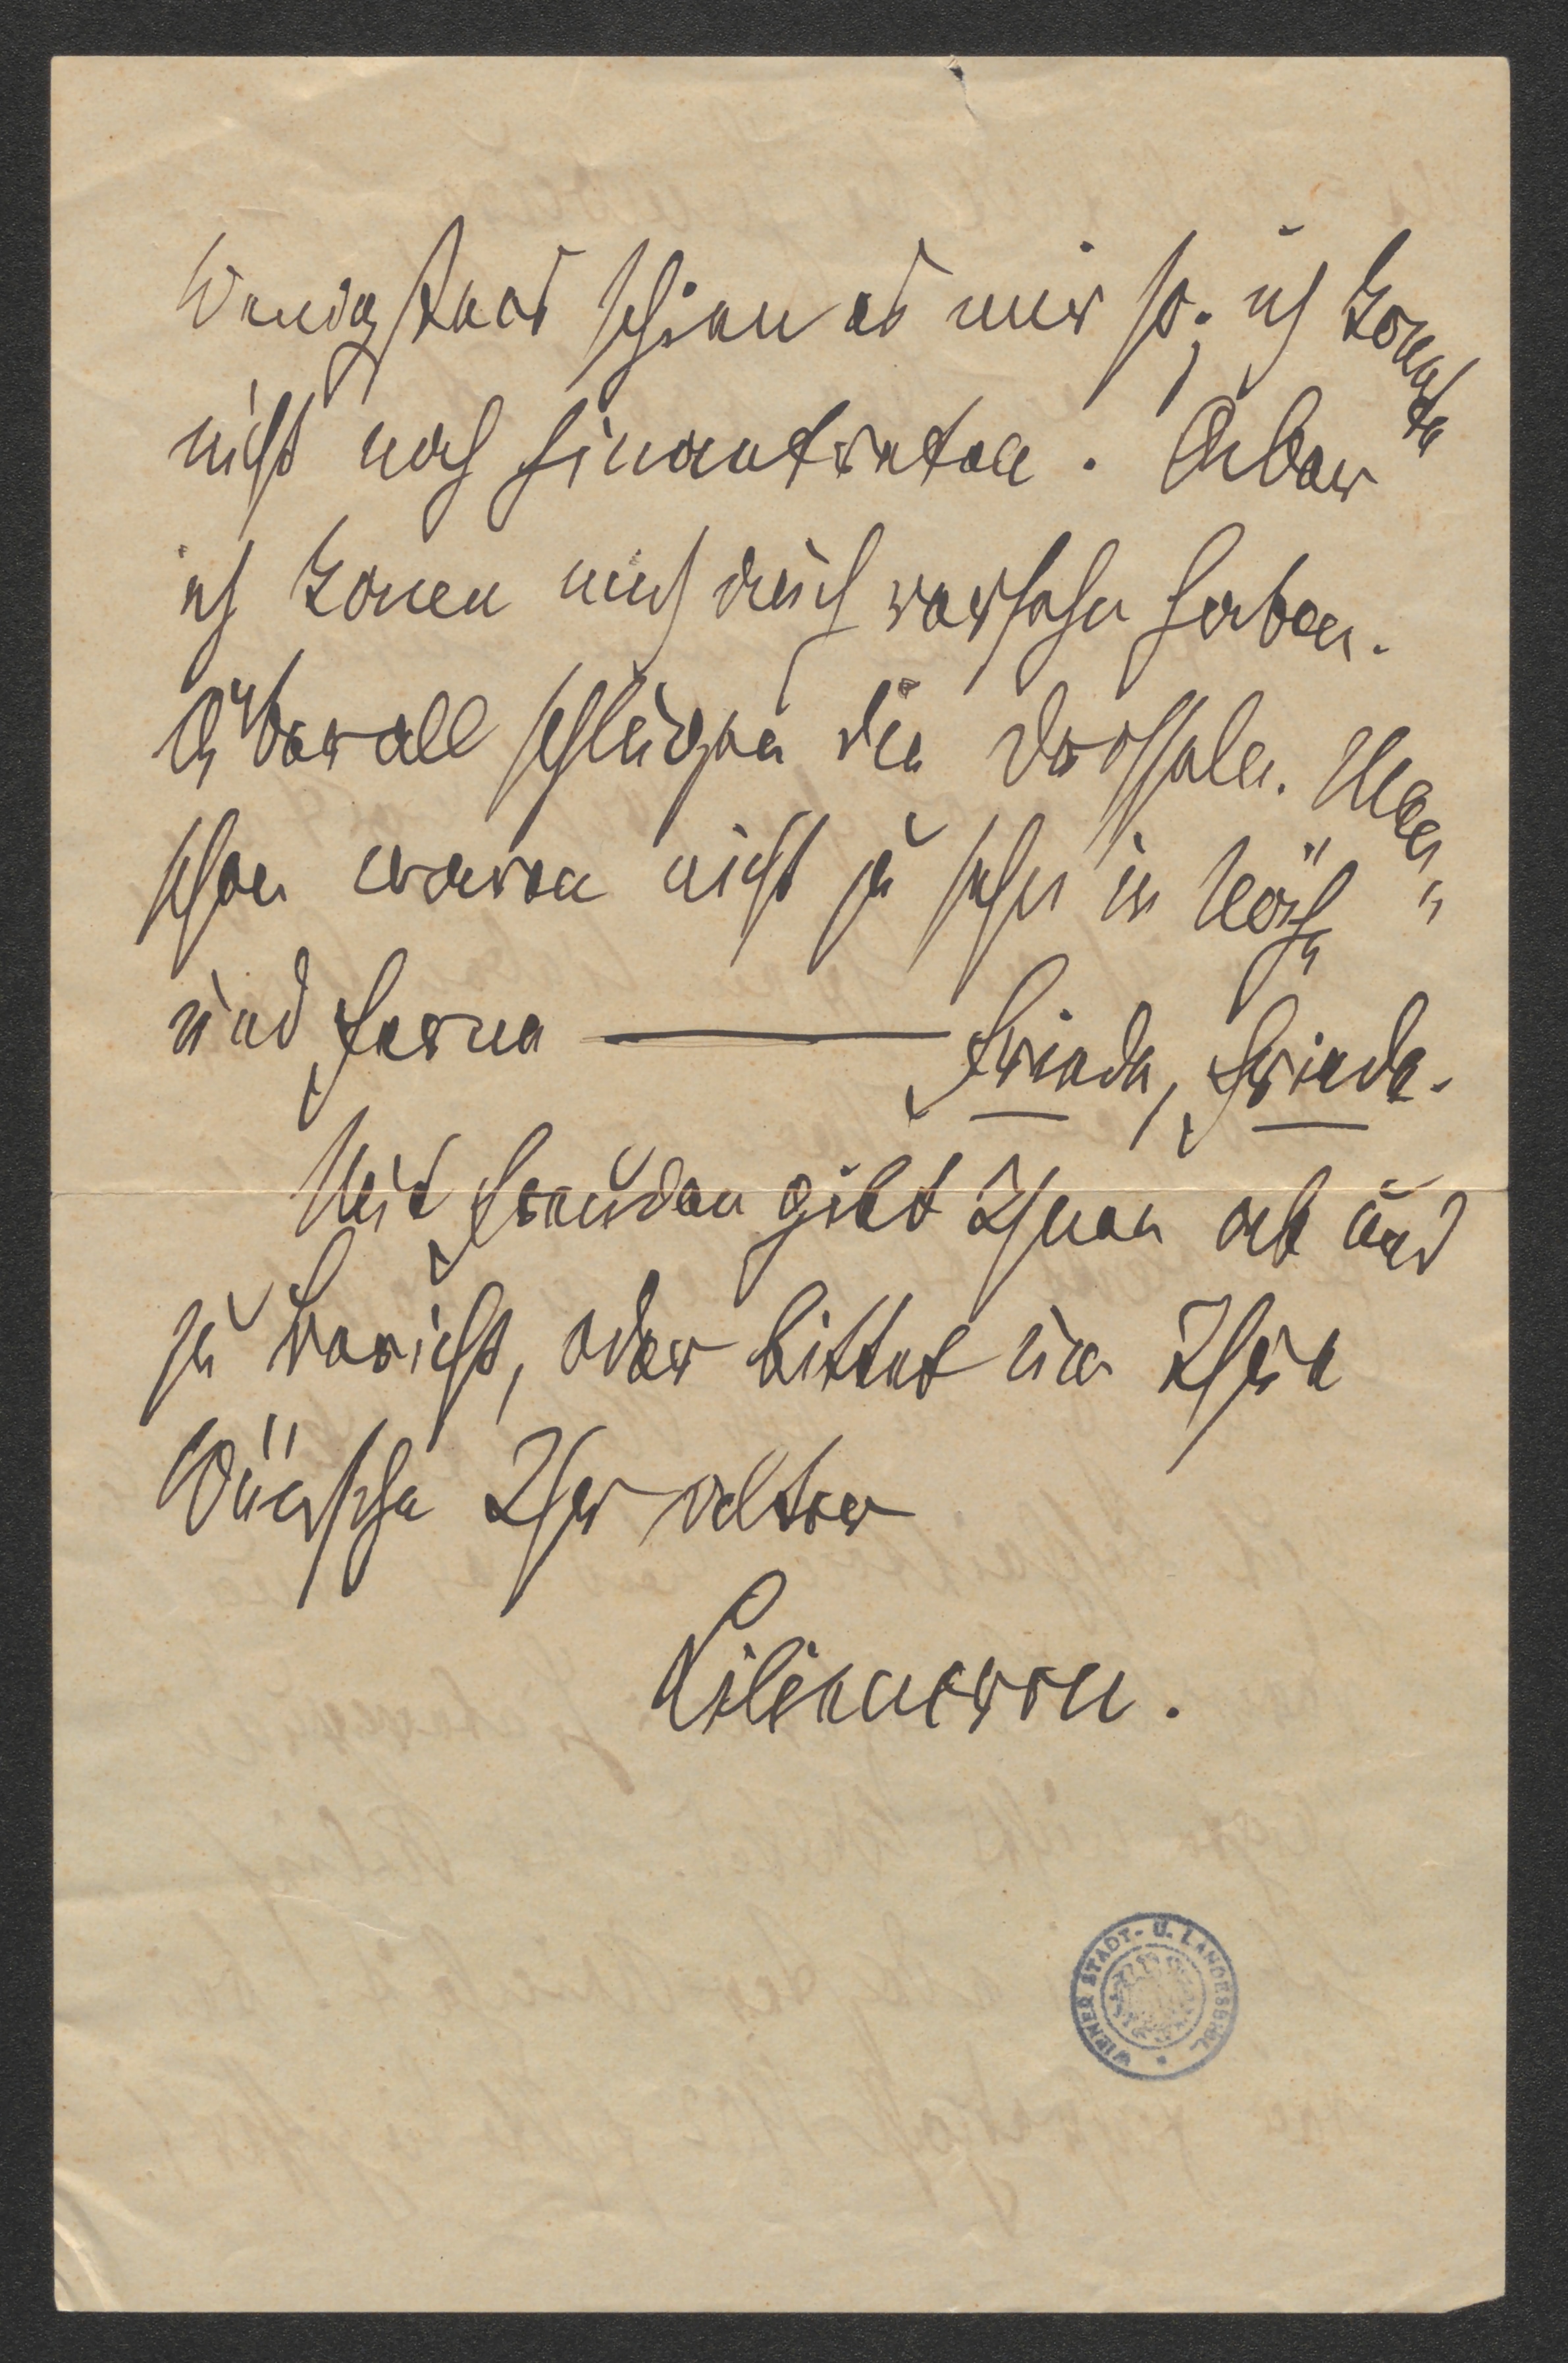 Wenigstens schien es mir so; ich konnte
nicht nach hinantreten. Aber
ich kann mich auch versehn haben.
Überall schlugen die Drosseln. Men-
schen waren nicht zu sehn in Näh
und Ferne — Friede, Friede.
Mit Freuden gibt Ihnen ab und
zu Bericht, oder bittet um Ihre
Wünsche Ihr alter
Liliencron.
WIENER STADT- U. LANDESBIBL.